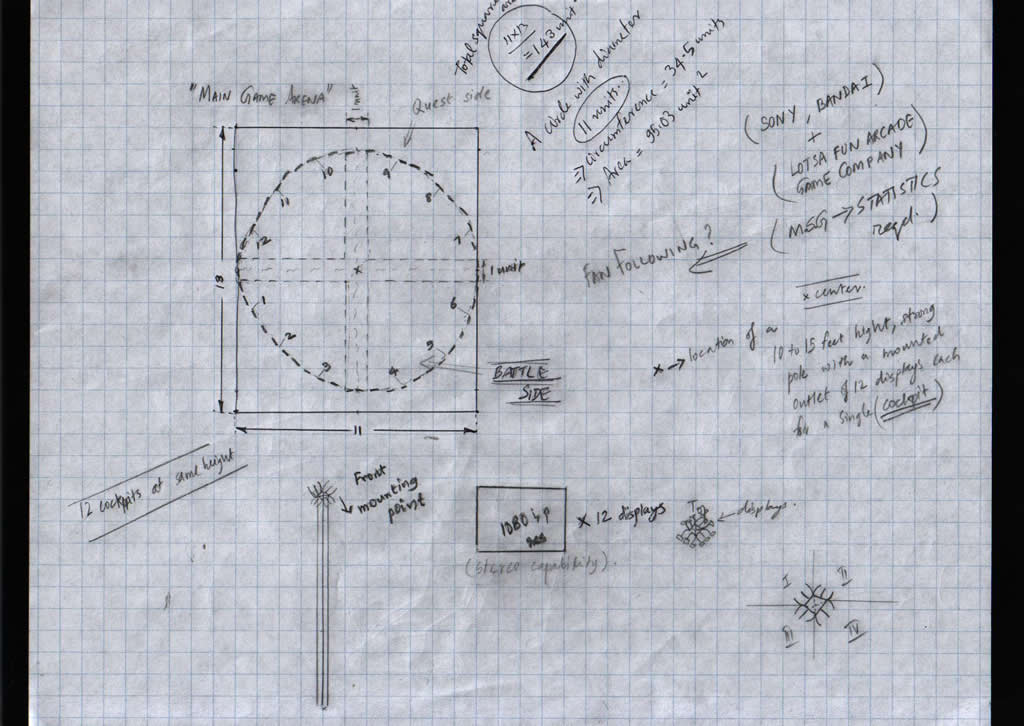 Total square
11X13
= 143 unit
A circle with diameter
11 units.
⇒ Circumference = 34.5 units
⇒ Area = 95.03 unit²
"MAIN GAME ARENA"
1 unit
Quest side
(SONY, BANDAI)
+
(LOTSA FUN ARCADE
GAME COMPANY)
(MSG → STATISTICS
reqd.)
FAN FOLLOWING?
10
9
11
8
12
7
13
x
1 unit
1
6
2
5
3
4
BATTLE
SIDE
11
x center.
x → location of a
10 to 15 feet hight, strong
pole with a mounted
outlet of 12 displays each
for a single (cockpit)
12 cockpits at same height
Front
mounting
point
1080 i,p
res
X 12 displays
displays.
(stereo capability).
I
II
III
IV